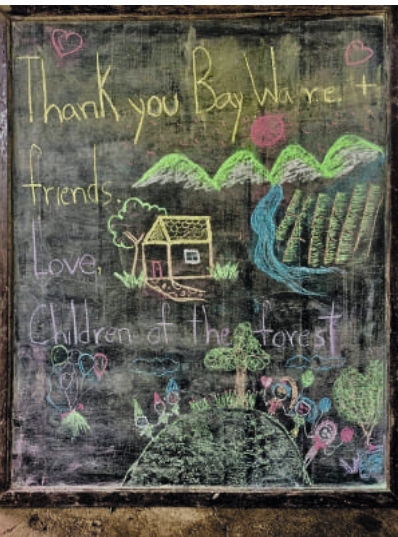 Thank you BayWa r.e. +
friends.
Love,
Children of the forest